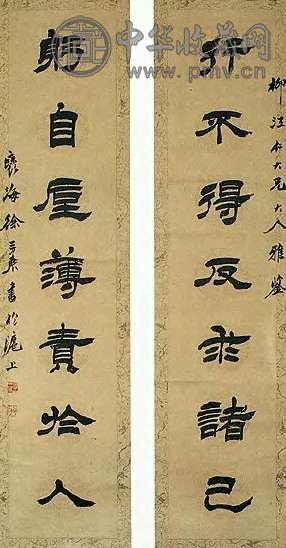 中华收藏网
www.pmv.cn
柳仁大兄大人雅鑒
行不得反求諸己
躬自厚薄責於人
褎海徐三庚書於滬上